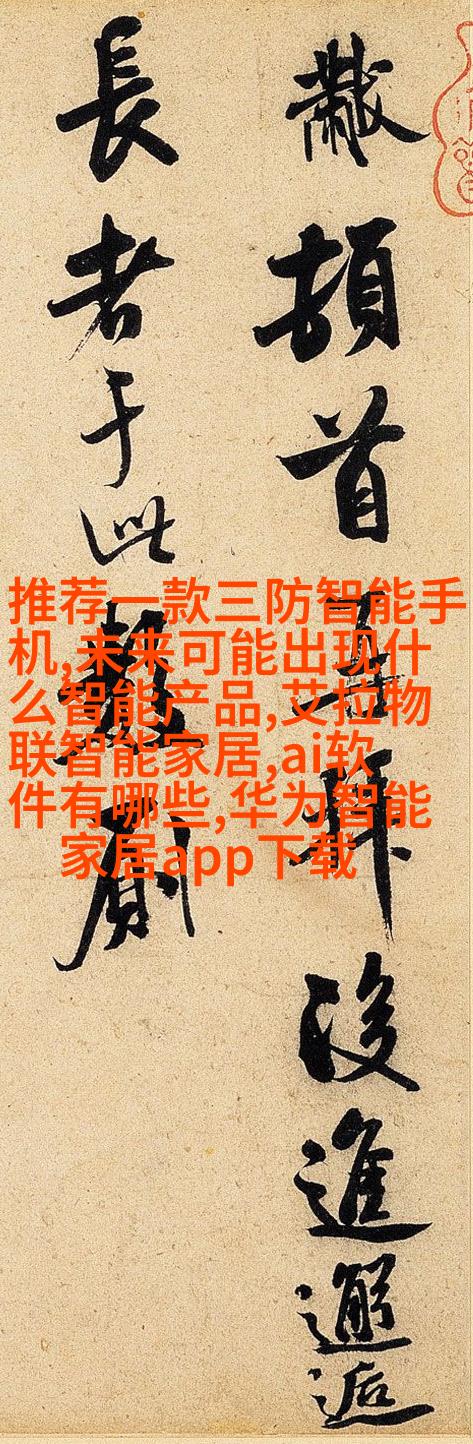 黻頓首再拜後進邂逅
長者于此數厠
推荐一款三防智能手
机,未来可能出现什
么智能产品,艾拉物
联智能家居,ai软
件有哪些,华为智能
家居app下载